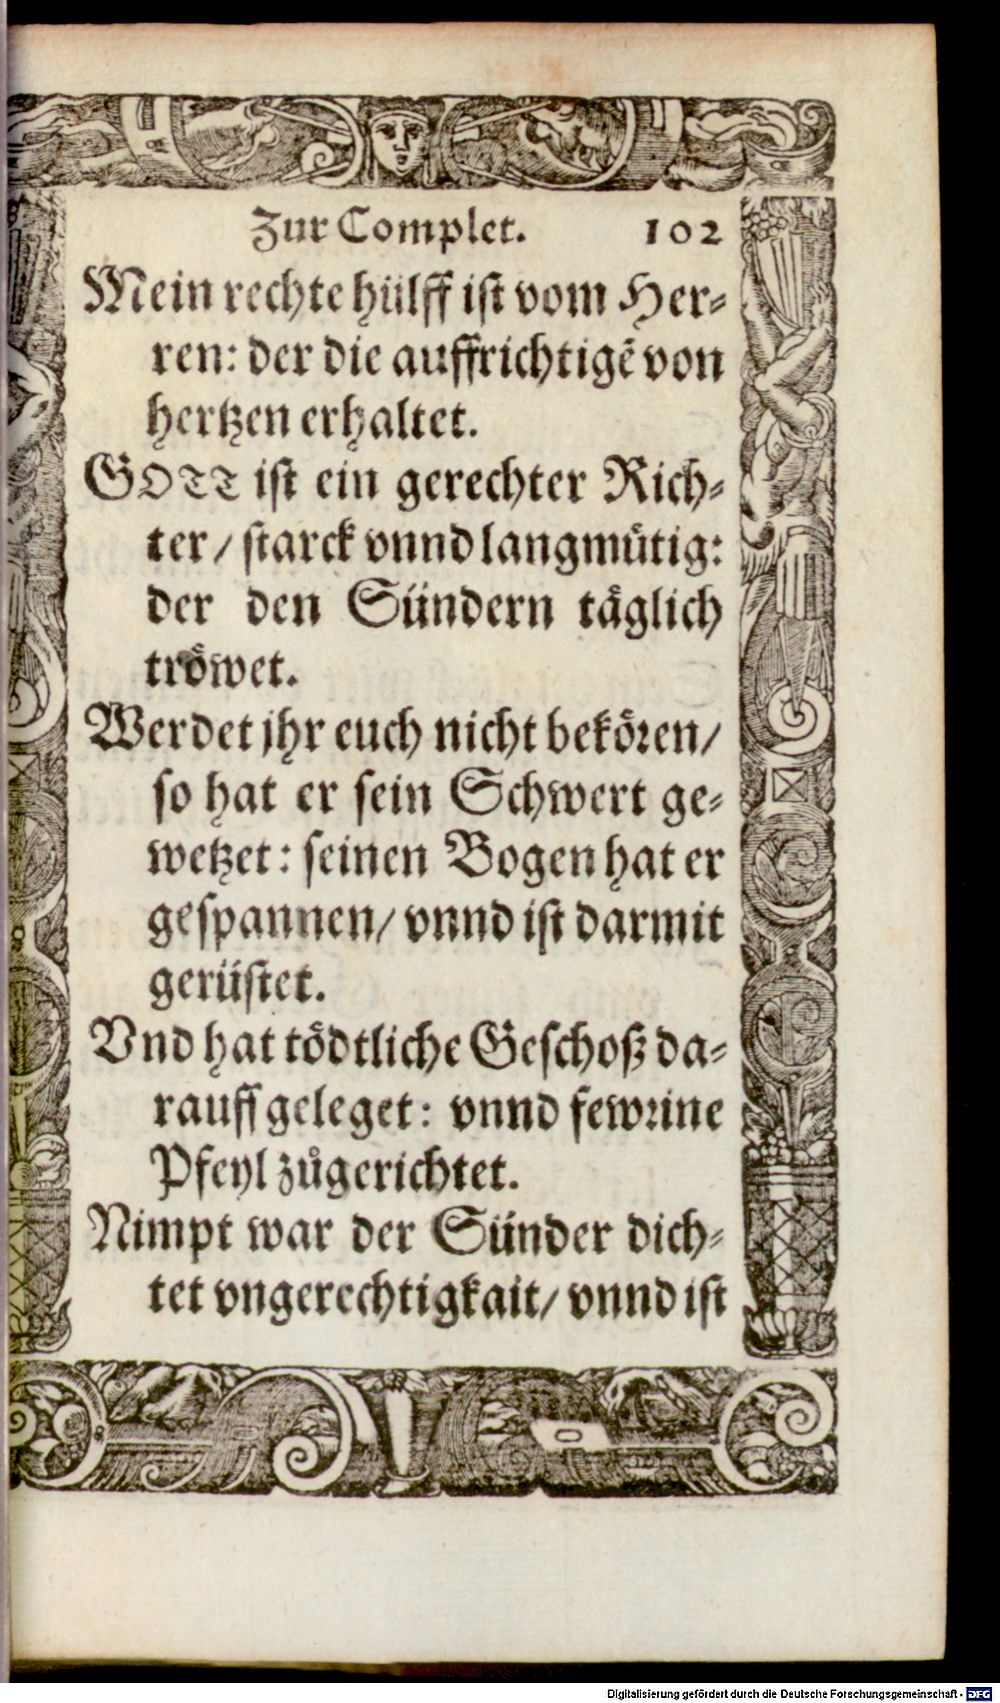 Zur Complet. 102
Mein rechte hülff ist vom Her-
ren: der die auffrichtigẽ von
hertzen erhaltet.
GOTT ist ein gerechter Rich-
ter / starck vnnd langmuͤtig:
der den Sündern taͤglich
troͤwet.
Werdet jhr euch nicht bekoͤren /
so hat er sein Schwert ge-
wetzet: seinen Bogen hat er
gespannen / vnnd ist darmit
gerüstet.
Vnd hat toͤdtliche Geschoß da-
rauff geleget: vnnd fewrine
Pfeyl zůgerichtet.
Nimpt war der Sünder dich-
tet vngerechtigkait / vnnd ist
Digitalisierung gefördert durch die Deutsche Forschungsgemeinschaft - DFG